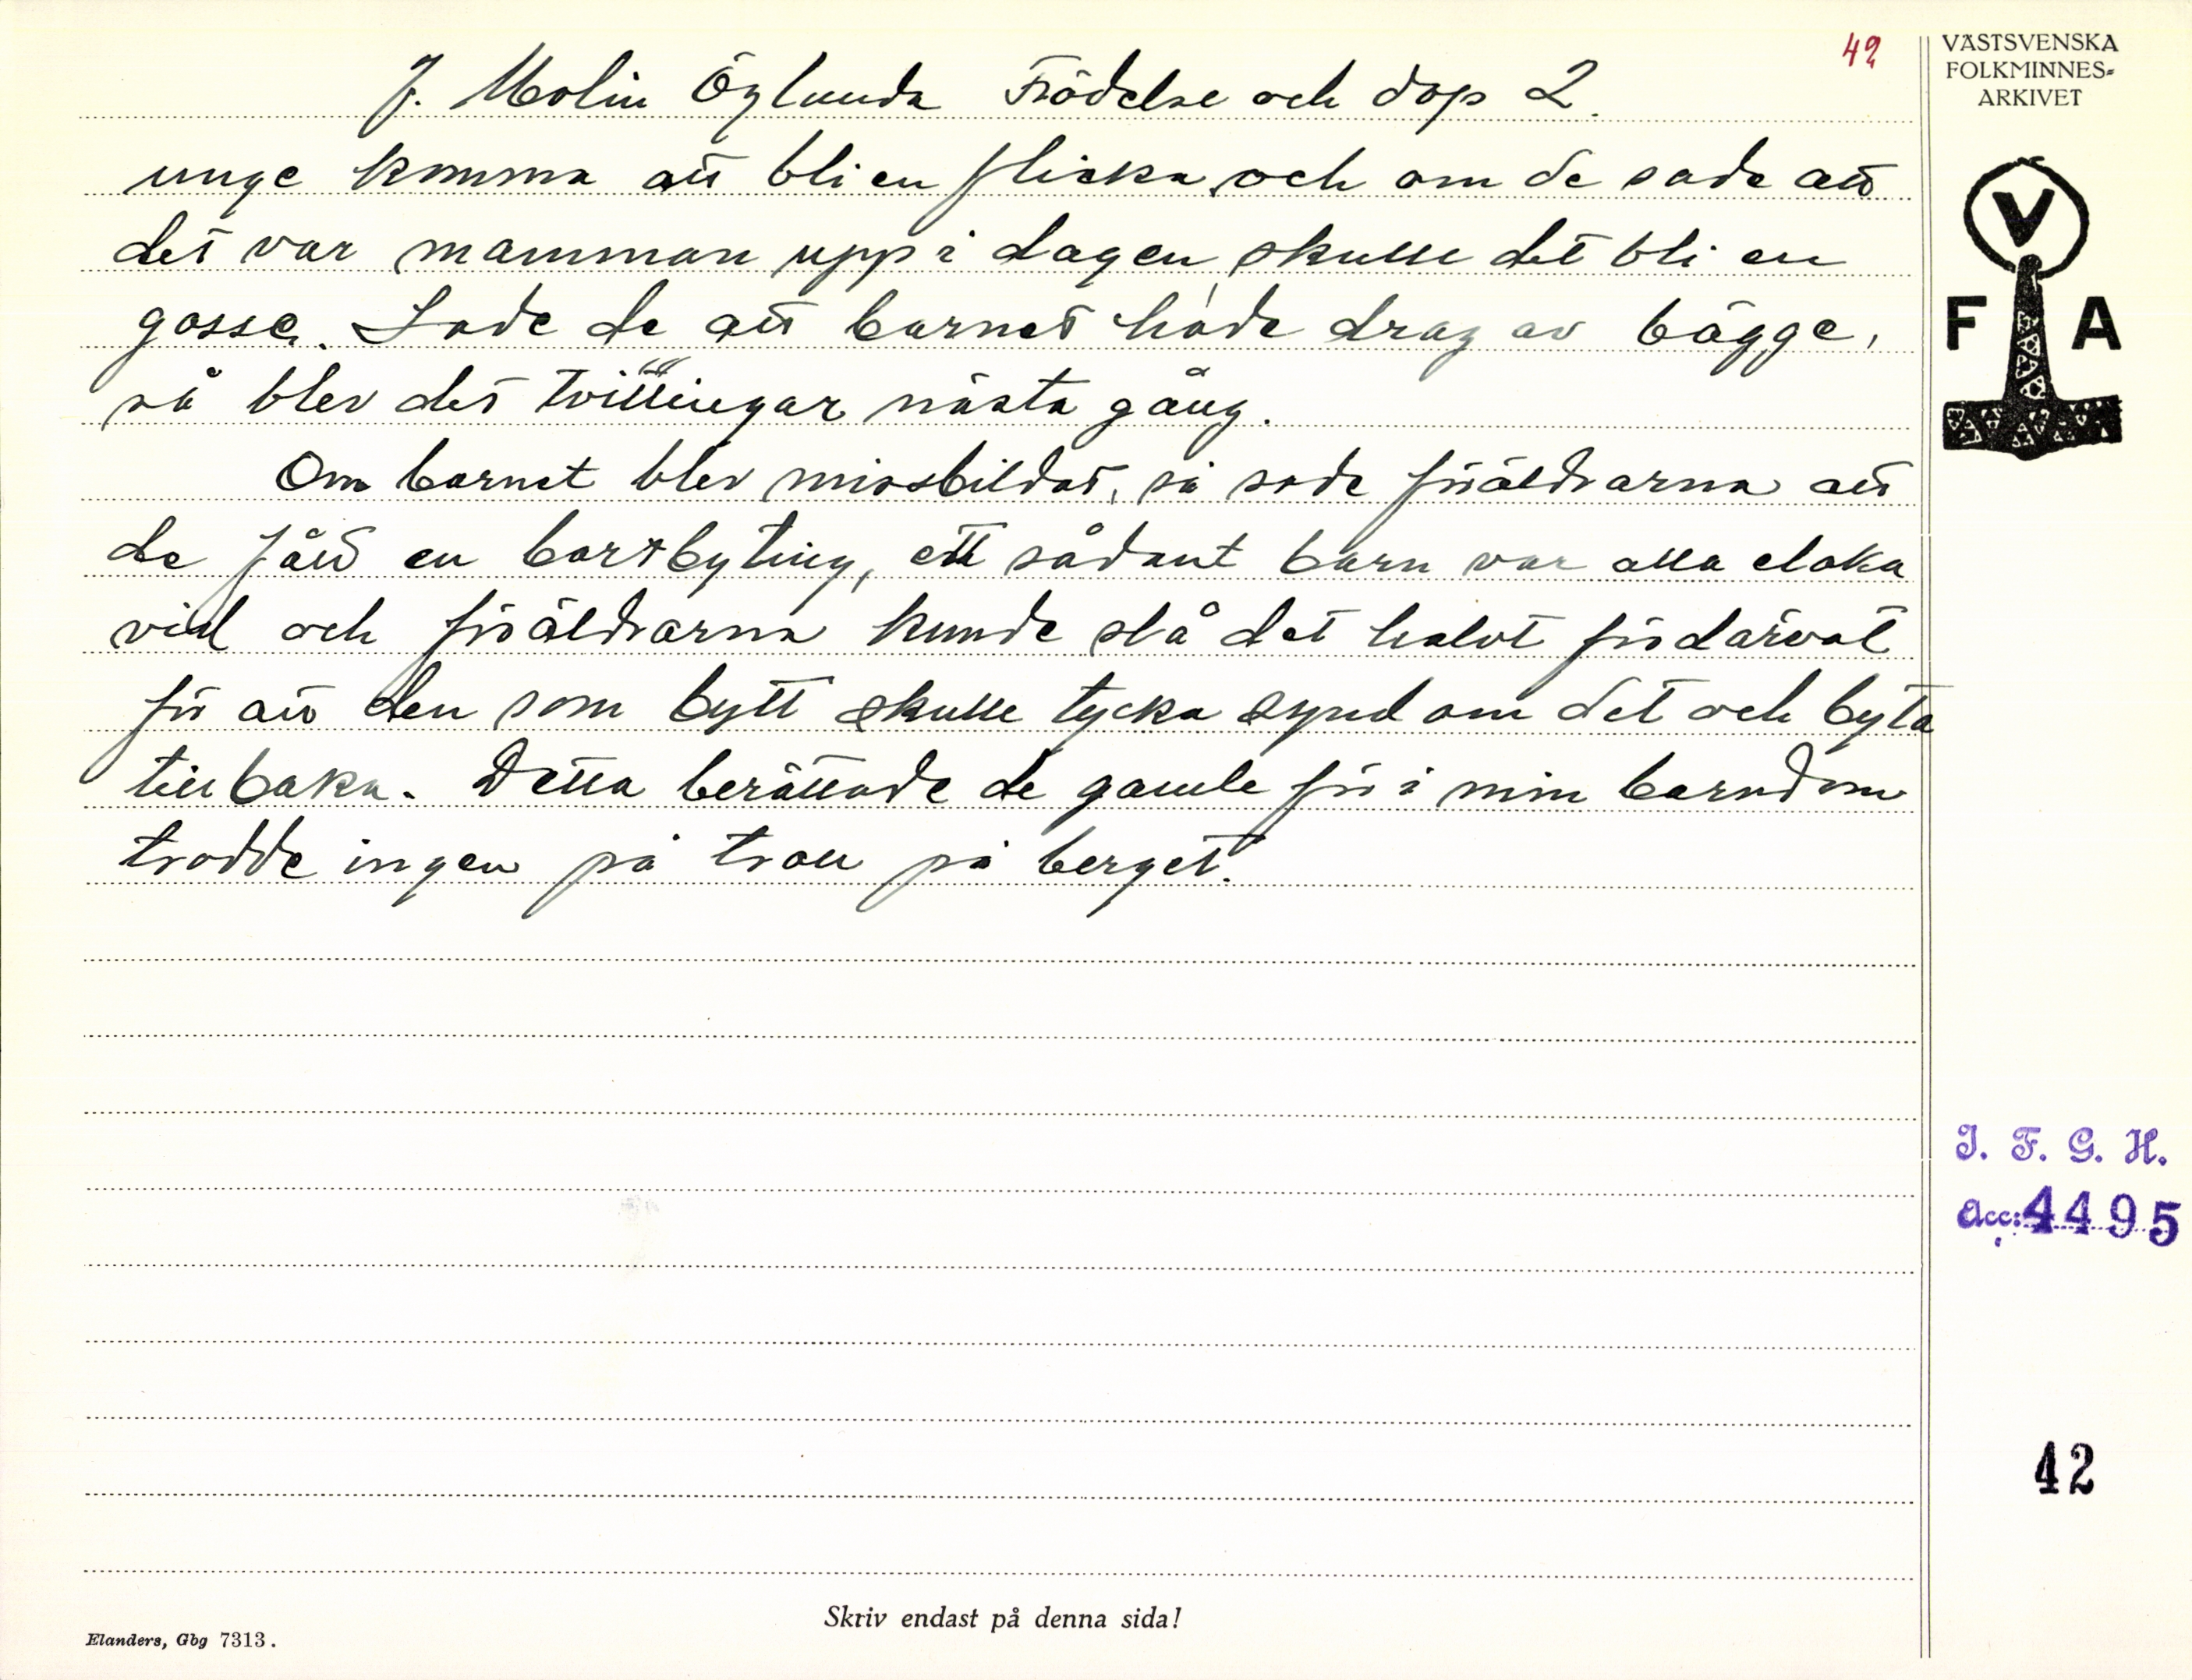 42
J. Molin Öglunda Födelse och dop 2.
unge komma att bli en flicka, och om de sade att
det var mamman upp i dagen, skulle det bli en
gosse. Sade de att barnet hade drag av bägge,
så blev det tvillingar nästa gång.
Om barnet blev missbildat, så sade föräldrarna att
de fått en bortbyting, ett sådant barn var alla elaka
vid och föräldrarna kunde slå det halvt fördärvat
för att den som bytt skulle tycka synd om det och byta
tillbaka. Detta berättade de gamle för i min barndom
trodde ingen på troll på berget.
VÄSTSVENSKA
FOLKMINNES=
ARKIVET
V
F A
I. F. G. H.
Acc: 4495
42
Skriv endast på denna sida!
Elanders, Gbg 7313.